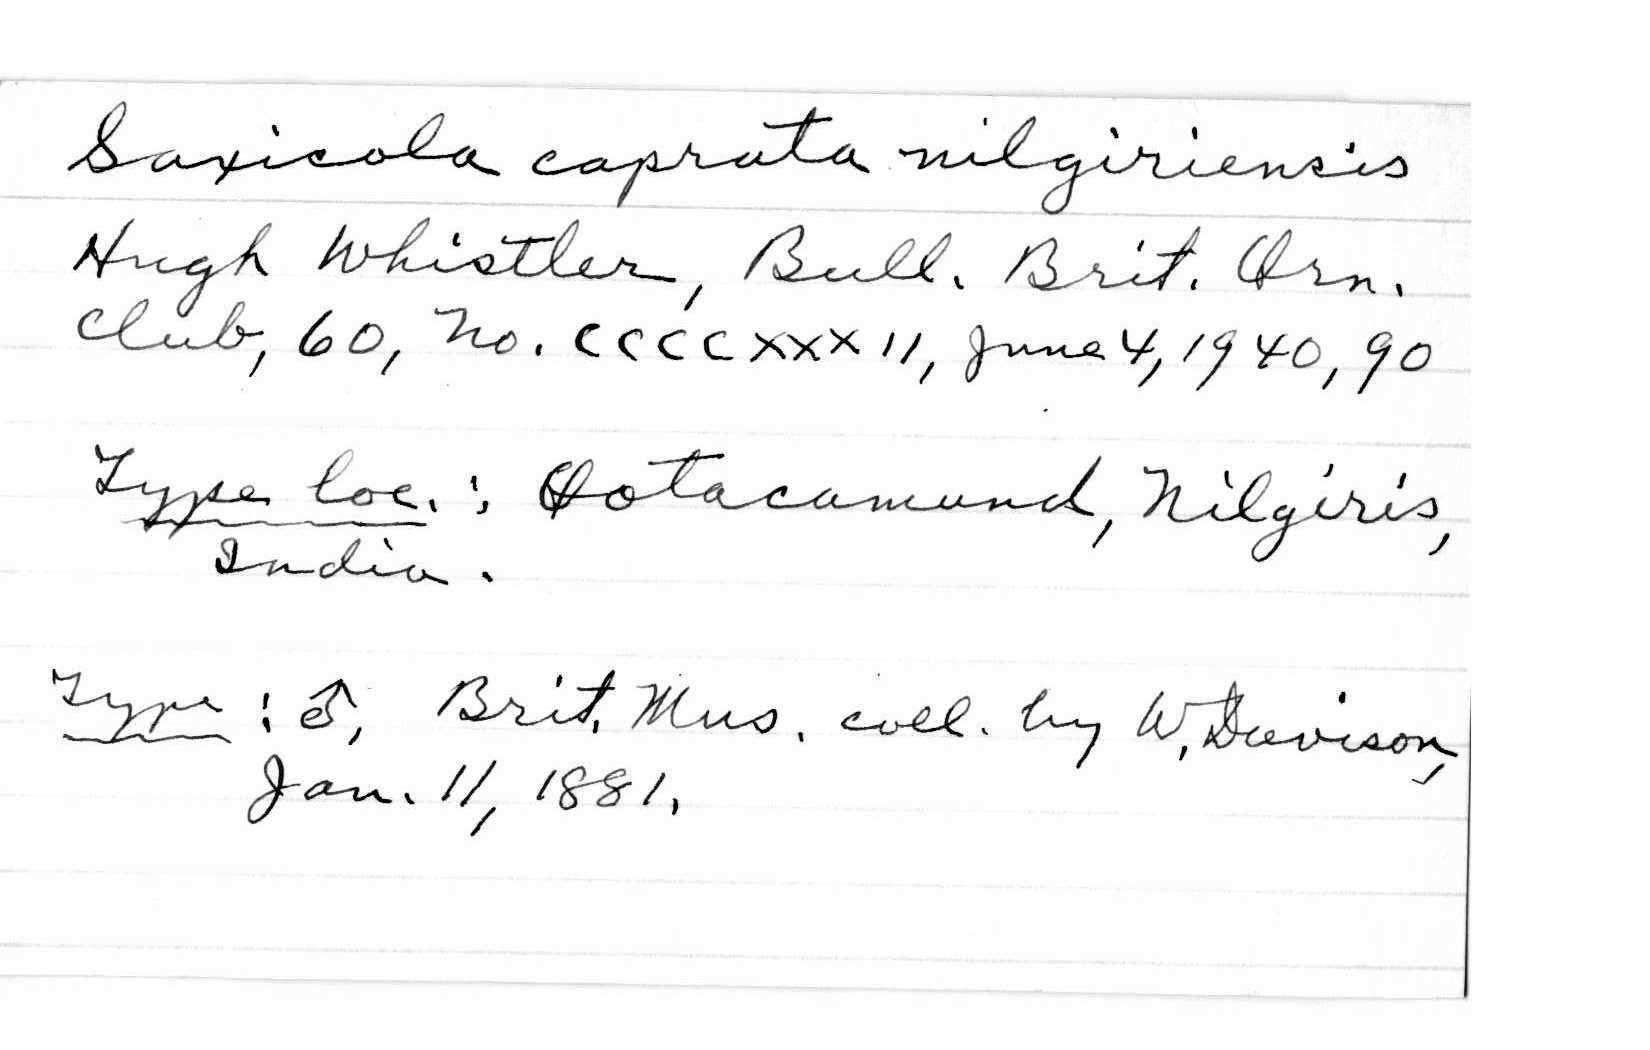 Saxicola caprata nilgiriensis
Hugh Whistler, Bull. Brit. Orn.
Club, 60, No. CCCCXXXII, June 4, 1940, 90
Type loc.: Ootacamund, Nilgiris,
India.
Type: ♂, Brit. Mus. coll. by W. Davison,
Jan. 11, 1881.